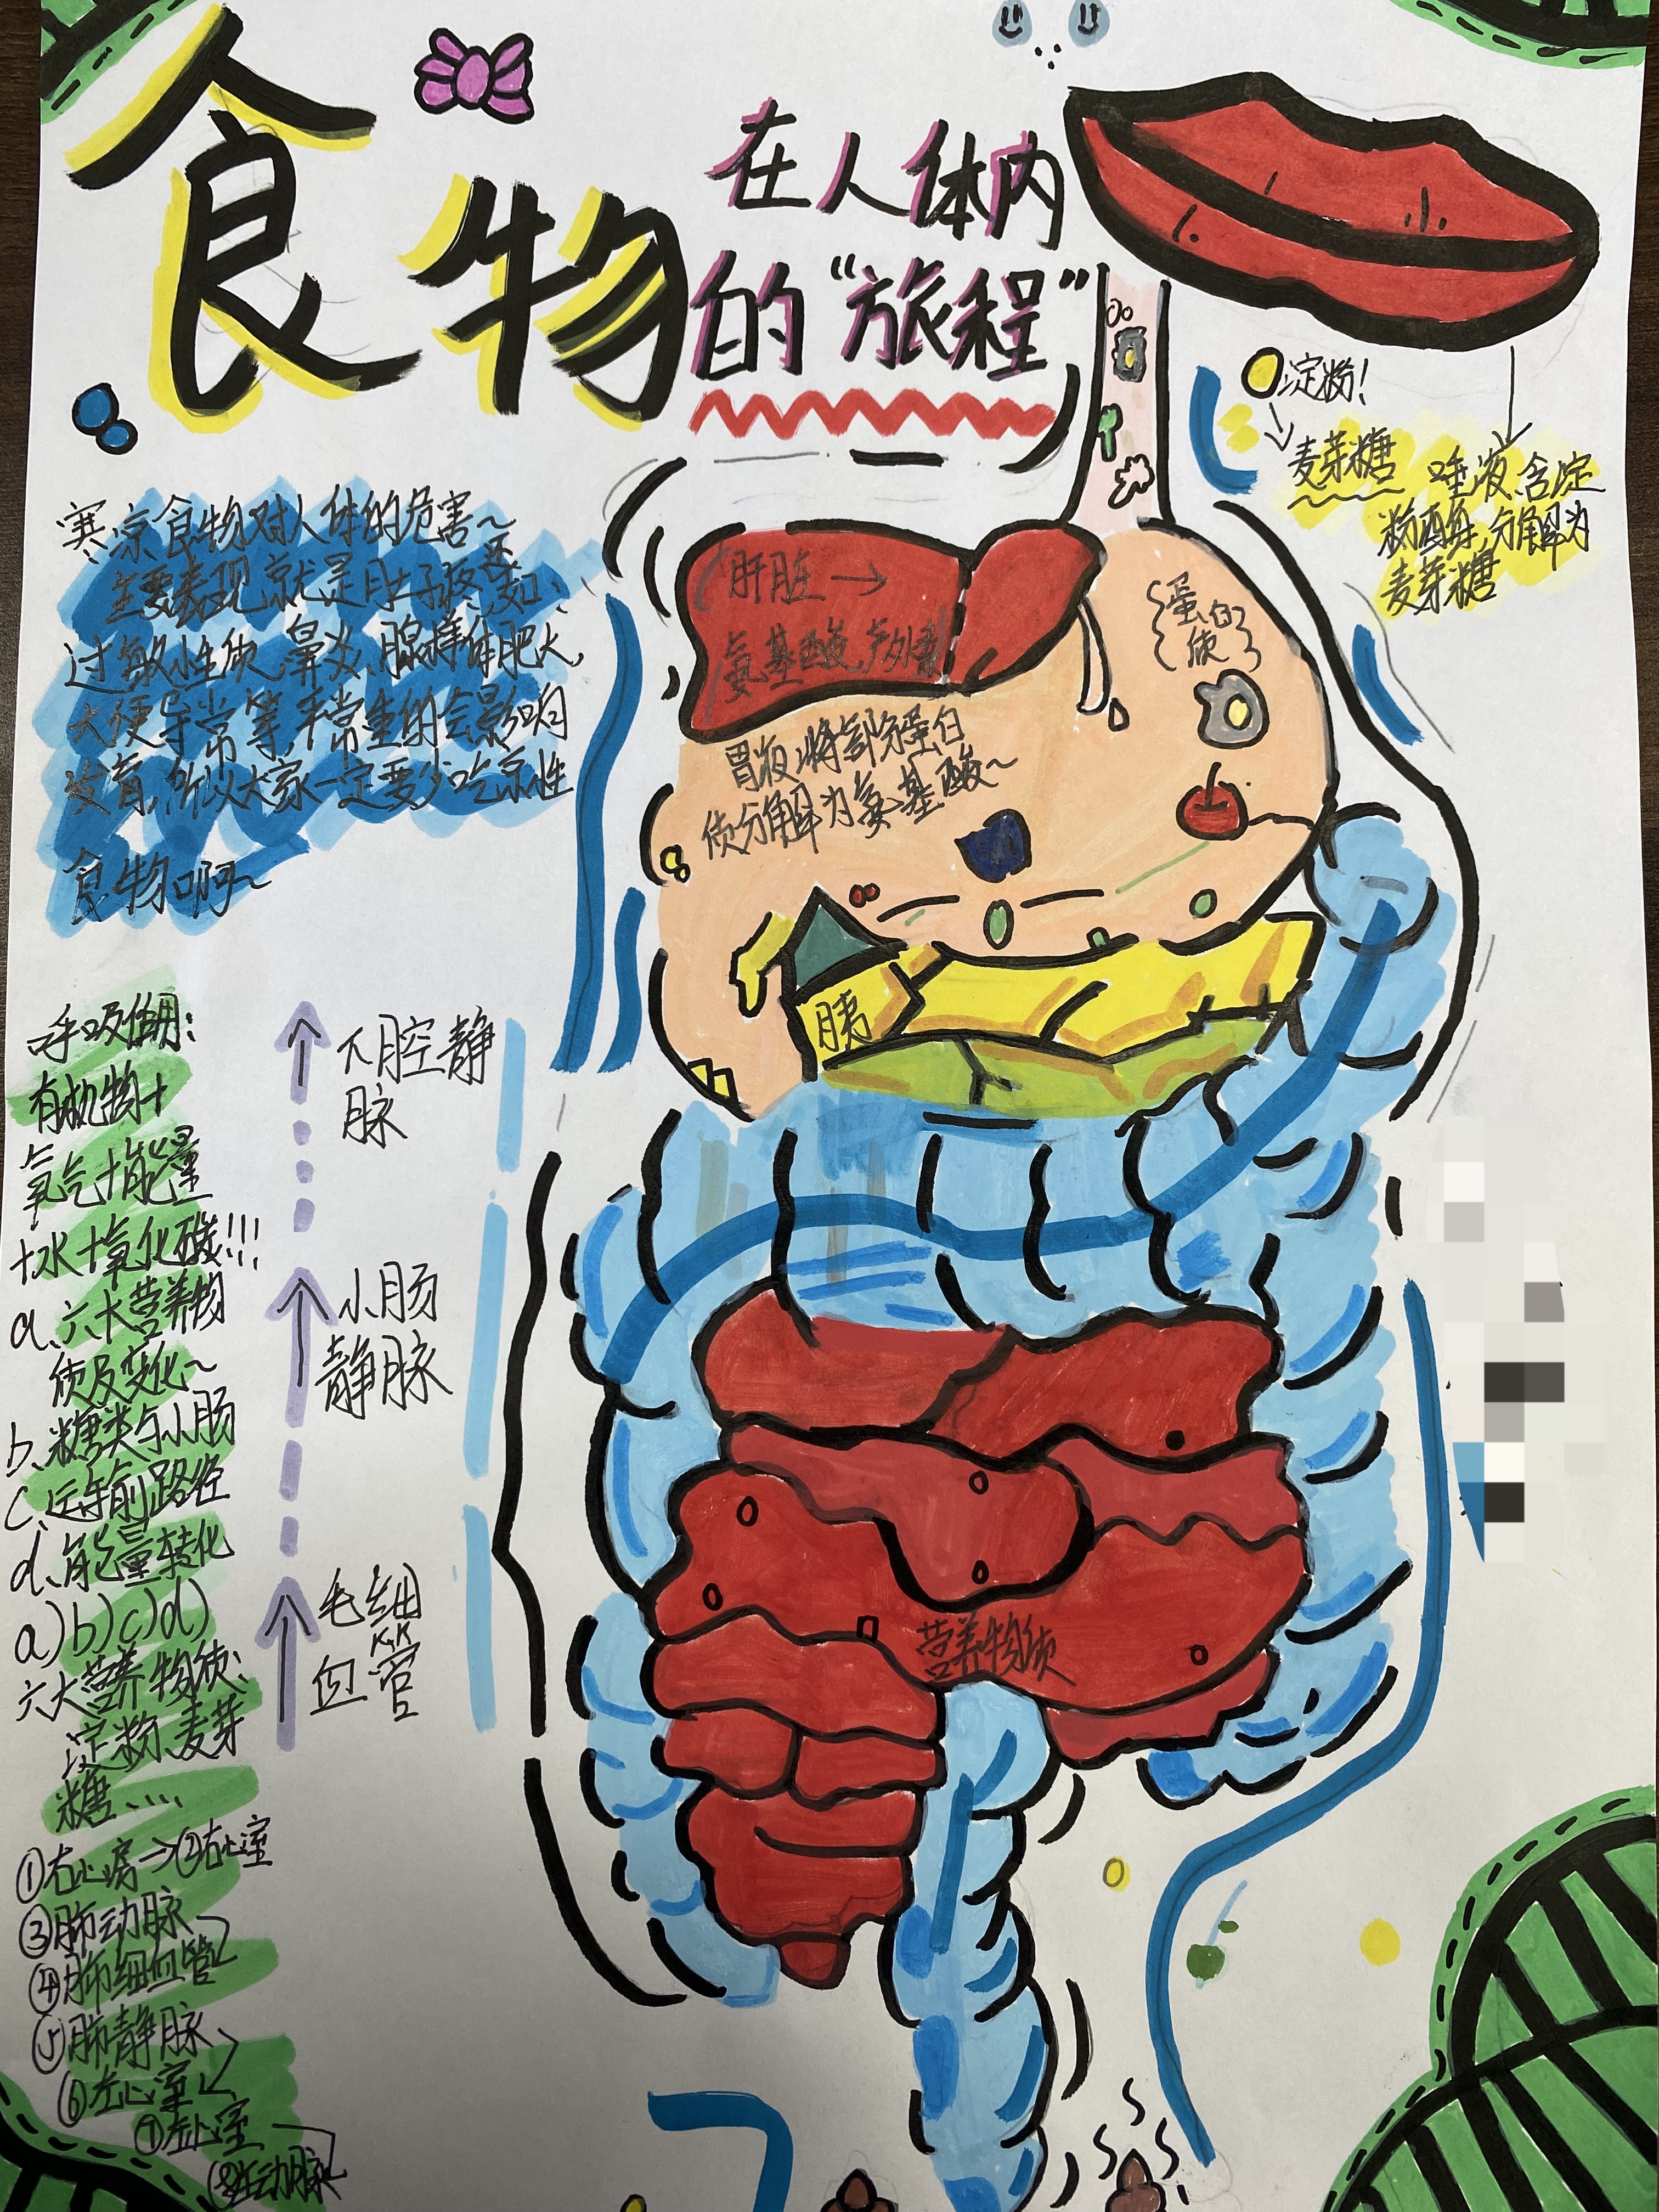 食物
在人体内
的“旅程”
淀粉！
麦芽糖
唾液含淀
粉酶,分解为
麦芽糖
寒凉食物对人体的危害～
主要表现就是肚子疼,还
如:
过敏性质鼻炎、腺样体肥大,
大便异常等,平常生的会影响
发育,所以大家一定要少吃凉性
食物啊～
肝脏→
氨基酸
蛋白
质
胃液:将部分蛋白
质分解为氨基酸～
胰
营养物质
下腔静
脉
小肠
静脉
毛细
血管
呼吸作用:
有机物+
氧气+能量
+水+氧化碳!!!
a、六大营养物
质及变化～
b、糖类与小肠
c、运输路径
d、能量转化
a)b)c)d)
六大营养物质:
淀粉、麦芽
糖、、、、
①右心房→②右心室
③肺动脉
④肺细血管
⑤肺静脉
⑥左心室
⑦左心室
⑧主动脉